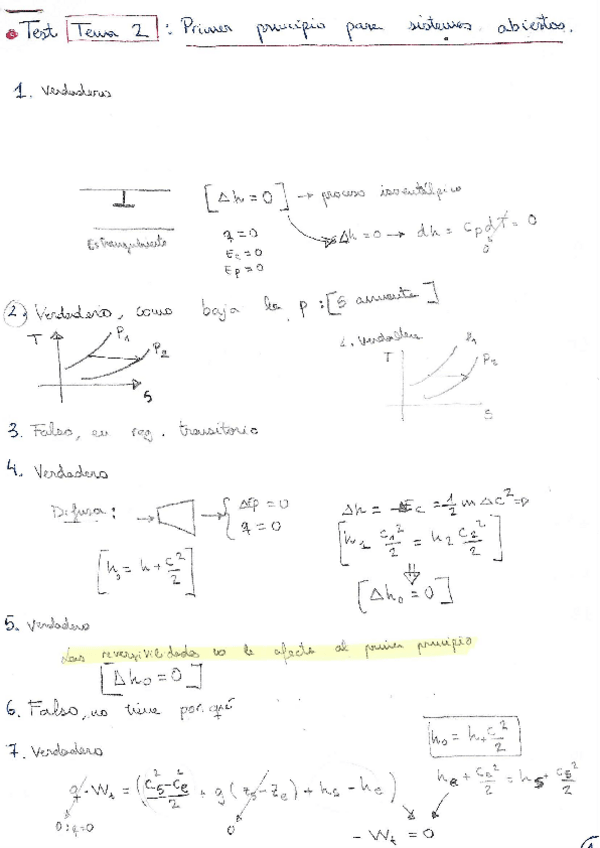 Test Tema 2 : Primer principio para sistemas abiertos.
1. Verdadera
[Δh = 0] → proceso isoentálpico
q = 0
Ec = 0
Ep = 0
Δh = 0 → dh = cp dT = 0
0
Estrangulamiento
2. Verdadero, como baja la p : [S aumenta]
T P1 P2 S
2. Verdadera
T P1 P2 S
3. Falso, en reg. transitorio
4. Verdadero
Difusor: → → { ΔEp = 0
q = 0
Δh = -Ec = 1/2 m Δc² ⇒
[h1 c1²/2 = h2 c2²/2]
⇓
[h0 = h + c²/2]
[Δh0 = 0]
5. Verdadero
Las reversivilidades no le afecta al primer principio
[Δh0 = 0]
6. Falso, no tiene por qué
7. Verdadero
h0 = h + c²/2
q - Wt = (cs² - ce²/2 + g(zs - ze) + hs - he)
he + ce²/2 = hs + cs²/2
0 : q = 0
0
- Wt = 0